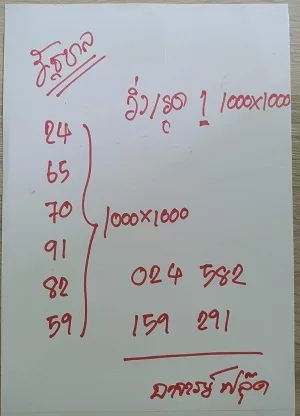 รัฐบาล
วิ่ง/รูด 1 1000×1000
24
65
70
91
82
59
1000×1000
024 582
159 291
อาจารย์ ฟลุ๊ค